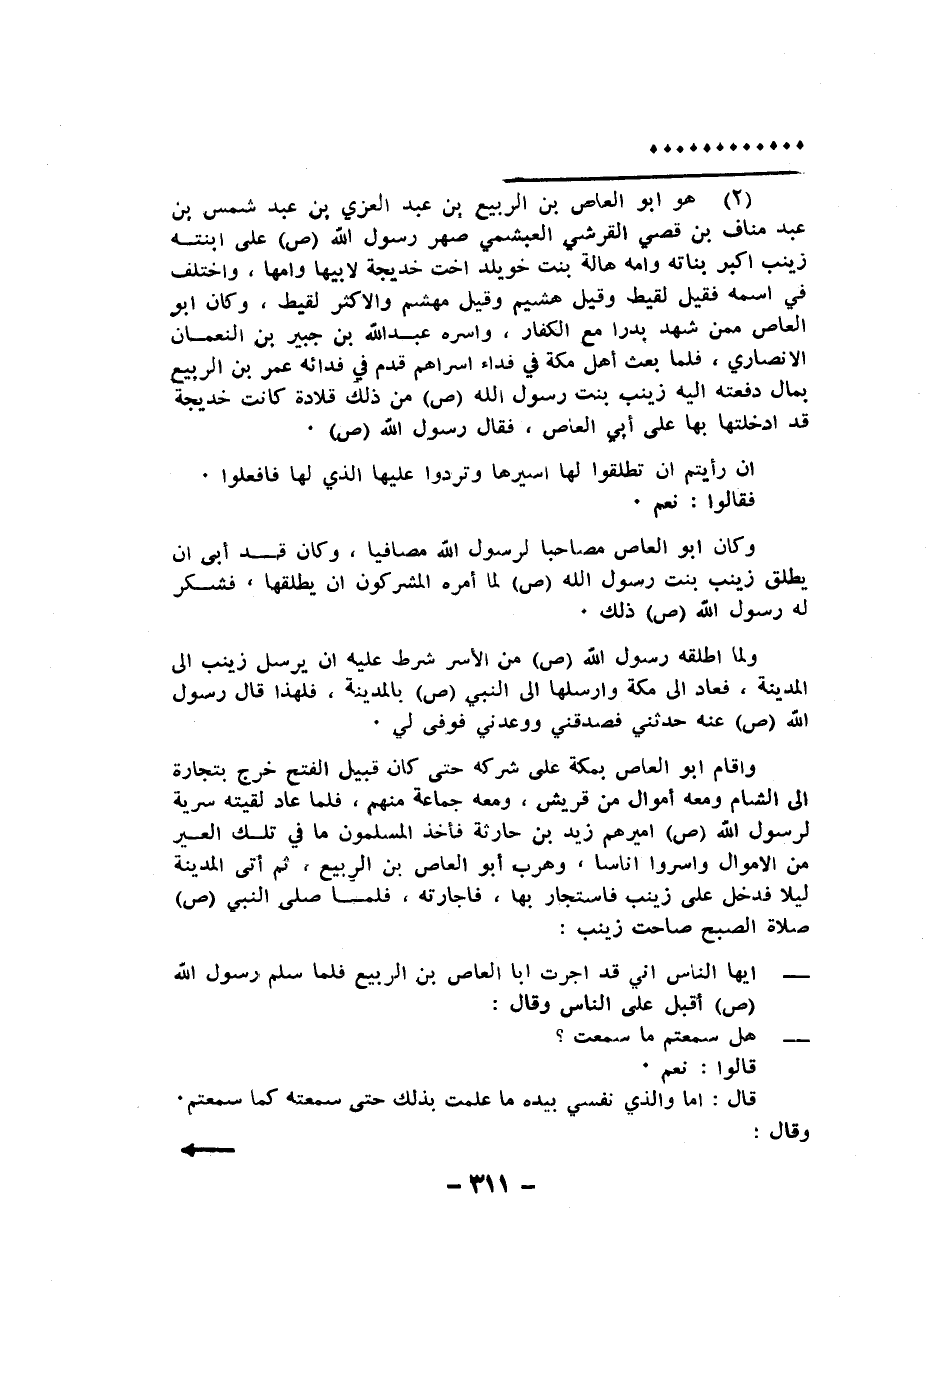 (٢) هو ابو العاص بن الربيع بن عبد العزي بن عبد شمس بن
عبد مناف بن قصي القرشي العبشمي صهر رسول الله (ص) على ابنتـه
زينب اكبر بناته وامه هالة بنت خويلد اخت خديجة لابيها وامها ، واختلف
في اسمه فقيل لقيط وقيل هشيم وقيل مهشم والاكثر لقيط ، وكان ابو
العاص ممن شهد بدرا مع الكفار ، واسره عبـدالله بن جبير بن النعمـان
الانصاري ، فلما بعث أهل مكة في فداء اسراهم قدم في فدائه عمر بن الربيع
بمال دفعته اليه زينب بنت رسول الله (ص) من ذلك قلادة كانت خديجة
قد ادخلتها بها على أبي العاص ، فقال رسول الله (ص) ٠
ان رأيتم ان تطلقوا لها اسيرها وتردوا عليها الذي لها فافعلوا ٠
فقالوا : نعم ٠
وكان ابو العاص مصاحبا لرسول الله مصافيا ، وكان قـد أبى ان
يطلق زينب بنت رسول الله (ص) لما أمره المشركون ان يطلقها ، فشـكر
له رسول الله (ص) ذلك ٠
ولما اطلقه رسول الله (ص) من الأسر شرط عليه ان يرسل زينب الى
المدينة ، فعاد الى مكة وارسلها الى النبي (ص) بالمدينة ، فلهذا قال رسول
الله (ص) عنه حدثني فصدقني ووعدني فوفى لي ٠
واقام ابو العاص بمكة على شركه حتى كان قبيل الفتح خرج بتجارة
الى الشام ومعه أموال من قريش ، ومعه جماعة منهم ، فلما عاد لقيته سرية
لرسول الله (ص) اميرهم زيد بن حارثة فأخذ المسلمون ما في تلـك العـير
من الاموال واسروا اناسا ، وهرب أبو العاص بن الربيع ، ثم أتى المدينة
ليلا فدخل على زينب فاستجار بها ، فاجارته ، فلمـا صلى النبي (ص)
صلاة الصبح صاحت زينب :
— ايها الناس اني قد اجرت ابا العاص بن الربيع فلما سلم رسول الله
(ص) أقبل على الناس وقال :
— هل سمعتم ما سمعت ؟
قالوا : نعم ٠
قال : اما والذي نفسي بيده ما علمت بذلك حتى سمعته كما سمعتم ٠
وقال :
- ٣١١ -